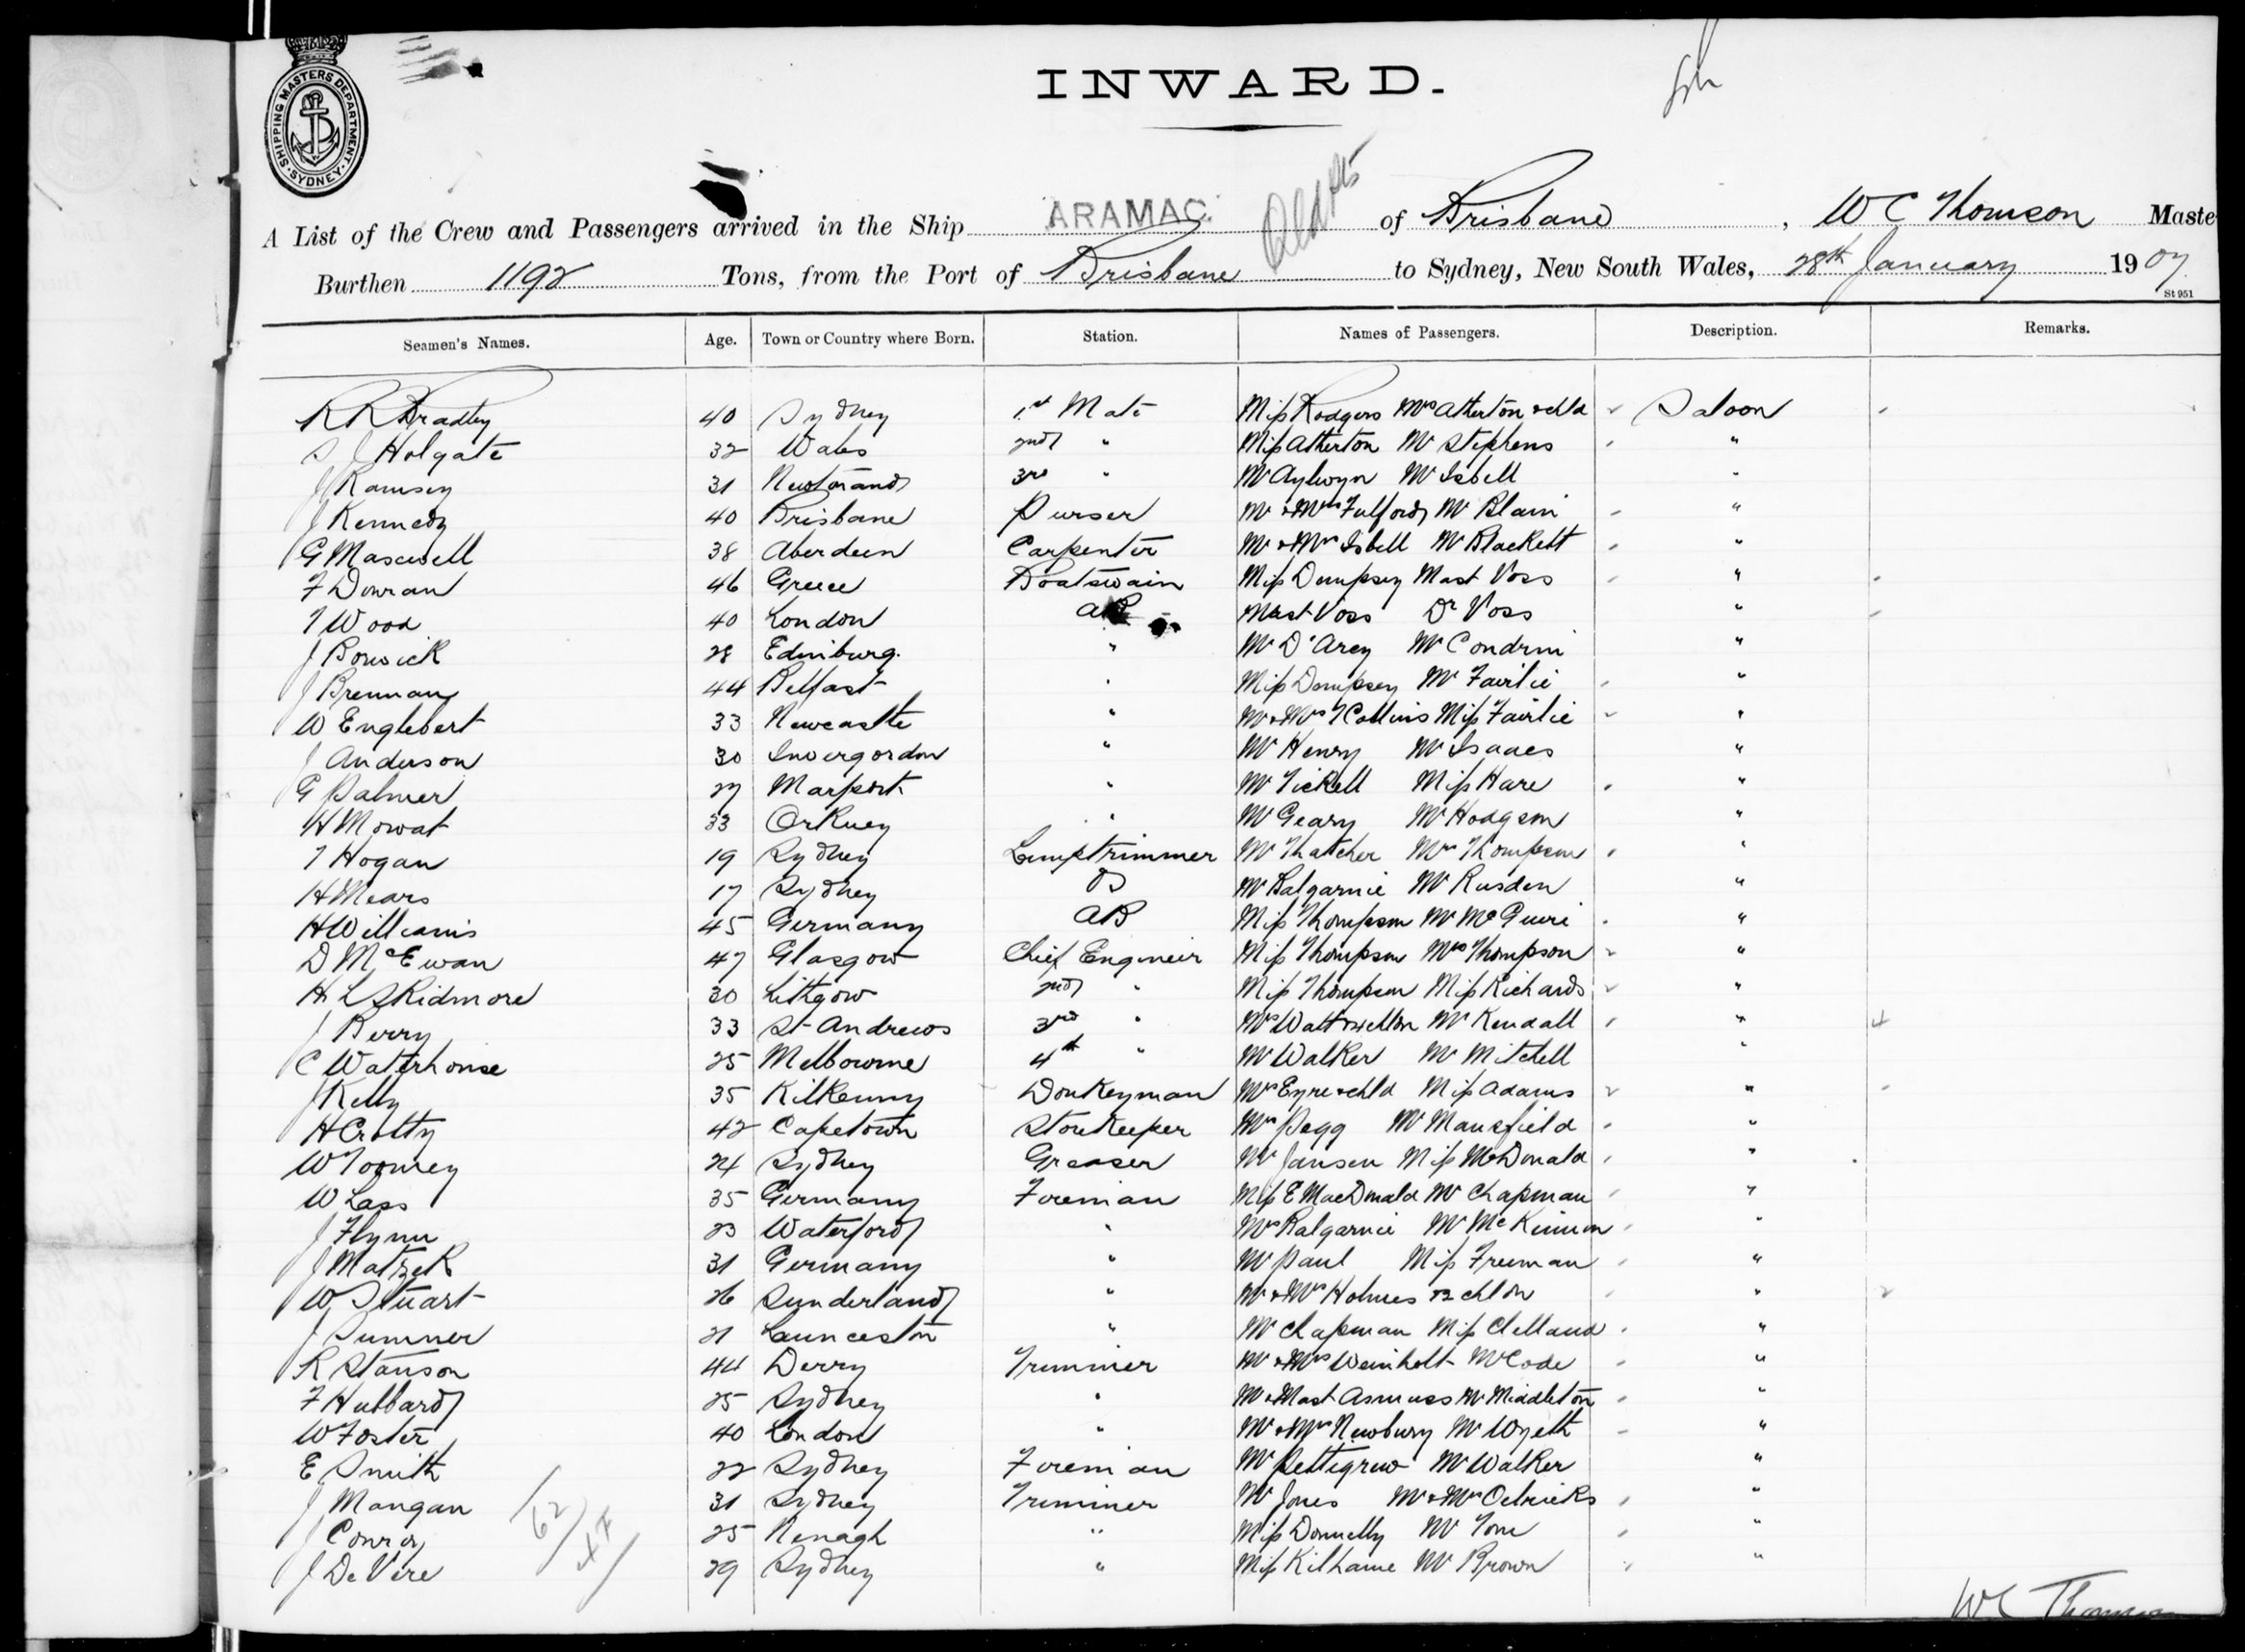 SHIPPING MASTERS DEPARTMENT · SYDNEY ·
INWARD.
A List of the Crew and Passengers arrived in the Ship ARAMAC. of Brisbane, W C Thomson Maste
Burthen 1192 Tons, from the Port of Brisbane to Sydney, New South Wales, 28th January 1907
St 951
Seamen's Names. Age. Town or Country where Born. Station. Names of Passengers. Description. Remarks.
R R Bradley 40 Sydney 1st Mate Miss Rodgers Mrs Atherton & chld Saloon
S J Holgate 32 Wales 2nd " Miss Atherton Mr Stephens "
J Ramsey 31 3rd " Mr Aylwyn Mr Isbell "
J Kennedy 40 Brisbane Purser Mr & Mrs Fulford Mr Blain "
G Maxwell 38 Aberdeen Carpenter Mr & Mrs Isbell Mr Blackett "
F Dowran 46 Greece Boatswain Miss Dempsey Mast Voss "
T Wood 40 London AB Mast Voss Dr Voss "
J Borwick 28 Edinburg. " Mr D'Arcy Mr Condrin "
J Brennan 44 Belfast " Miss Dempsey Mr Fairlie "
W Englebert 33 Newcastle " Mr & Mrs Collins Miss Fairlie "
J Anderson 30 Invergordon " Mr Henry Mr Isaacs "
G Palmer 27 Marport " Mr Tickell Miss Hare "
H Mowat 33 Orkney " Mr Geary Mr Hodgson "
T Hogan 19 Sydney Lamptrimmer Mr Thatcher Mrs Thompson "
H Mears 17 Sydney OS Mr Balgarnie Mr Rusden "
H Williams 45 Germany AB Miss Thompson Mr McGuire "
D McEwan 47 Glasgow Chief Engineer Miss Thompson Mrs Thompson "
H L Skidmore 30 Lithgow 2nd " Miss Thompson Miss Richards "
J Berry 33 St Andrews 3rd " Mr Kendall " 4
C Waterhouse 25 Melbourne 4th " Mr Walker Mr Mitchell "
J Kelly 35 Kilkenny Donkeyman Mrs Eyre & chld Miss Adams "
H Crotty 42 Capetown Storekeeper Mrs Pegg Mr Mansfield "
W Toomey 24 Sydney Greaser Mr Jansen Miss McDonald "
W Lass 35 Germany Foreman Miss E MacDonald Mr Chapman "
J Flynn 23 Waterford " Mrs Balgarnie Mr McKinnon "
J Matzek 31 Germany " Mr Paul Miss Freeman "
W Stuart 26 Sunderland " Mr & Mrs Holmes & 2 chldn " 2
J Sumner 21 Launceston " Mr Chapman Miss Clelland "
R Stanson 44 Derry Trimmer Mr & Mrs Weinholt Mr Code "
F Hubbard 25 Sydney " Mr & Mast Asmuss Mr Middleton "
W Foster 40 London " Mr & Mrs Newbury Mr Wyeth "
E Smith 22 Sydney Foreman Mr Pettigrew Mr Walker "
J Mangan 31 Sydney Trimmer Mr Jones Mr & Mrs Oelricks "
J Conroy 25 Nenagh " Miss Donnelly Mr Tone "
J De Vere 29 Sydney " Miss Kilhame Mr Brown "
62/
WC Thomson